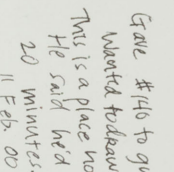 Gave #140 to gu
Wanted to draw
This is a place no
He said he'd
20 minutes
11 Feb. 00